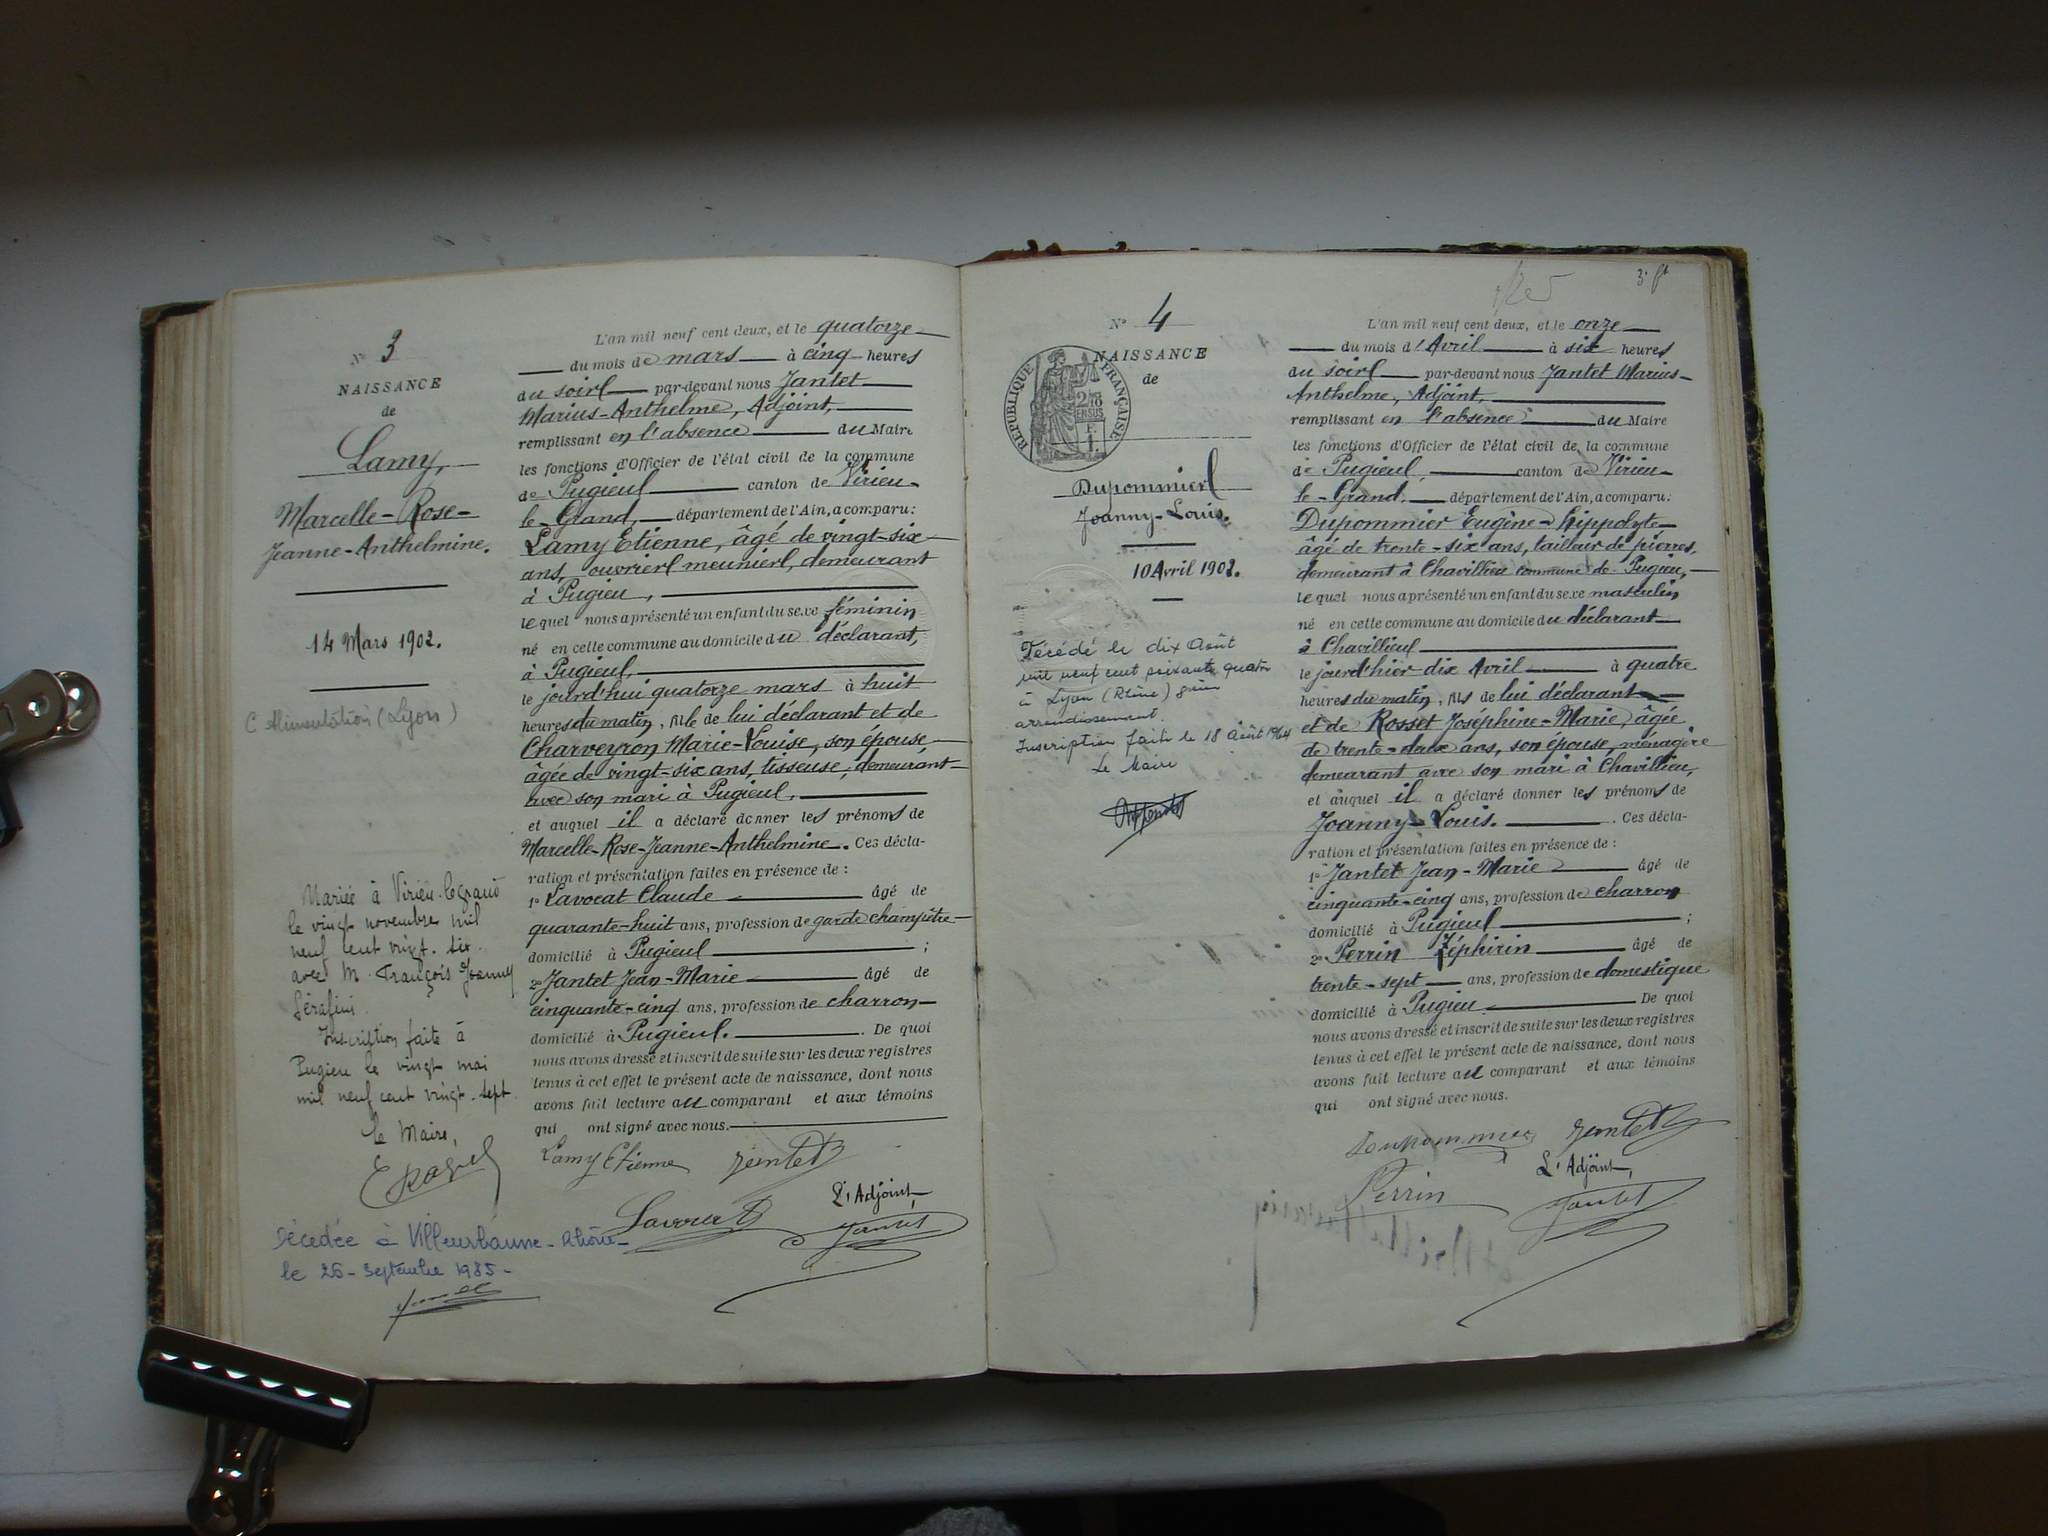 Nº 3
NAISSANCE
de
Lamy,
Marcelle-Rose-
Jeanne-Anthelmine.
14 Mars 1902.
C Alimentation (Lyon)
Mariée à Virieu-le-Grand
le vingt novembre mil
neuf cent vingt-six
avec M. François Joanny
Sérafini.
Inscription faite à
Pugieu le vingt mai
mil neuf cent vingt-sept
Le Maire,
Décédée à Villeurbanne-Rhône-
le 26-Septembre 1985-
L'an mil neuf cent deux, et le quatorze
du mois de mars à cinq heures
du soir par-devant nous Jantet
Marius-Anthelme, Adjoint,
remplissant en l'absence du Maire
les fonctions d'Officier de l'état civil de la commune
de Pugieu, canton de Virieu-
le-Grand, département de l'Ain, a comparu:
Lamy Etienne, âgé de vingt-six
ans, ouvrier meunier, demeurant
à Pugieu,
lequel nous a présenté un enfant du sexe féminin
né en cette commune au domicile du déclarant,
à Pugieu,
le jourd'hui quatorze mars à huit
heures du matin, fille de lui déclarant et de
Charveyron Marie-Louise, son épouse
âgée de vingt-six ans, tisseuse, demeurant
avec son mari à Pugieu,
et auquel il a déclaré donner les prénoms de
Marcelle-Rose-Jeanne-Anthelmine. Ces décla-
ration et présentation faites en présence de :
1º Lavocat Claude âgé de
quarante-huit ans, profession de garde champêtre
domicilié à Pugieu ;
2º Jantet Jean-Marie âgé de
cinquante-cinq ans, profession de charron
domicilié à Pugieu. De quoi
nous avons dressé et inscrit de suite sur les deux registres
tenus à cet effet le présent acte de naissance, dont nous
avons fait lecture au comparant et aux témoins
qui ont signé avec nous.
Lamy Etienne Jantet
Lavocat L'Adjoint,
Jantet
3e ft
Nº 4
NAISSANCE
de
RÉPUBLIQUE FRANÇAISE
2/10 EN SUS
F.
1.
Dupommier
Joanny-Louis.
10 Avril 1902.
Décédé le dix Août
mil neuf cent soixante quatre
à Lyon (Rhône)
arrondissement.
Inscription faite le 18 Août 1964
Le Maire
L'an mil neuf cent deux, et le onze
du mois d'Avril à six heures
du soir par-devant nous Jantet Marius-
Anthelme, Adjoint,
remplissant en l'absence du Maire
les fonctions d'Officier de l'état civil de la commune
de Pugieu, canton de Virieu-
le-Grand, département de l'Ain, a comparu:
Dupommier Eugène-Hippolyte
âgé de trente-six ans, tailleur de pierres,
demeurant à Chavillieu commune de Pugieu,
lequel nous a présenté un enfant du sexe masculin
né en cette commune au domicile du déclarant
à Chavillieu
le jourd'hier dix Avril à quatre
heures du matin, fils de lui déclarant
et de Rosset Joséphine-Marie, âgée
de trente-deux ans, son épouse, ménagère
demeurant avec son mari à Chavillieu,
et auquel il a déclaré donner les prénoms de
Joanny-Louis. Ces décla-
ration et présentation faites en présence de :
1º Jantet Jean-Marie âgé de
cinquante-cinq ans, profession de charron
domicilié à Pugieu ;
2º Perrin Zéphirin âgé de
trente-sept ans, profession de domestique
domicilié à Pugieu De quoi
nous avons dressé et inscrit de suite sur les deux registres
tenus à cet effet le présent acte de naissance, dont nous
avons fait lecture au comparant et aux témoins
qui ont signé avec nous.
Dupommier Jantet
Perrin L'Adjoint,
Jantet